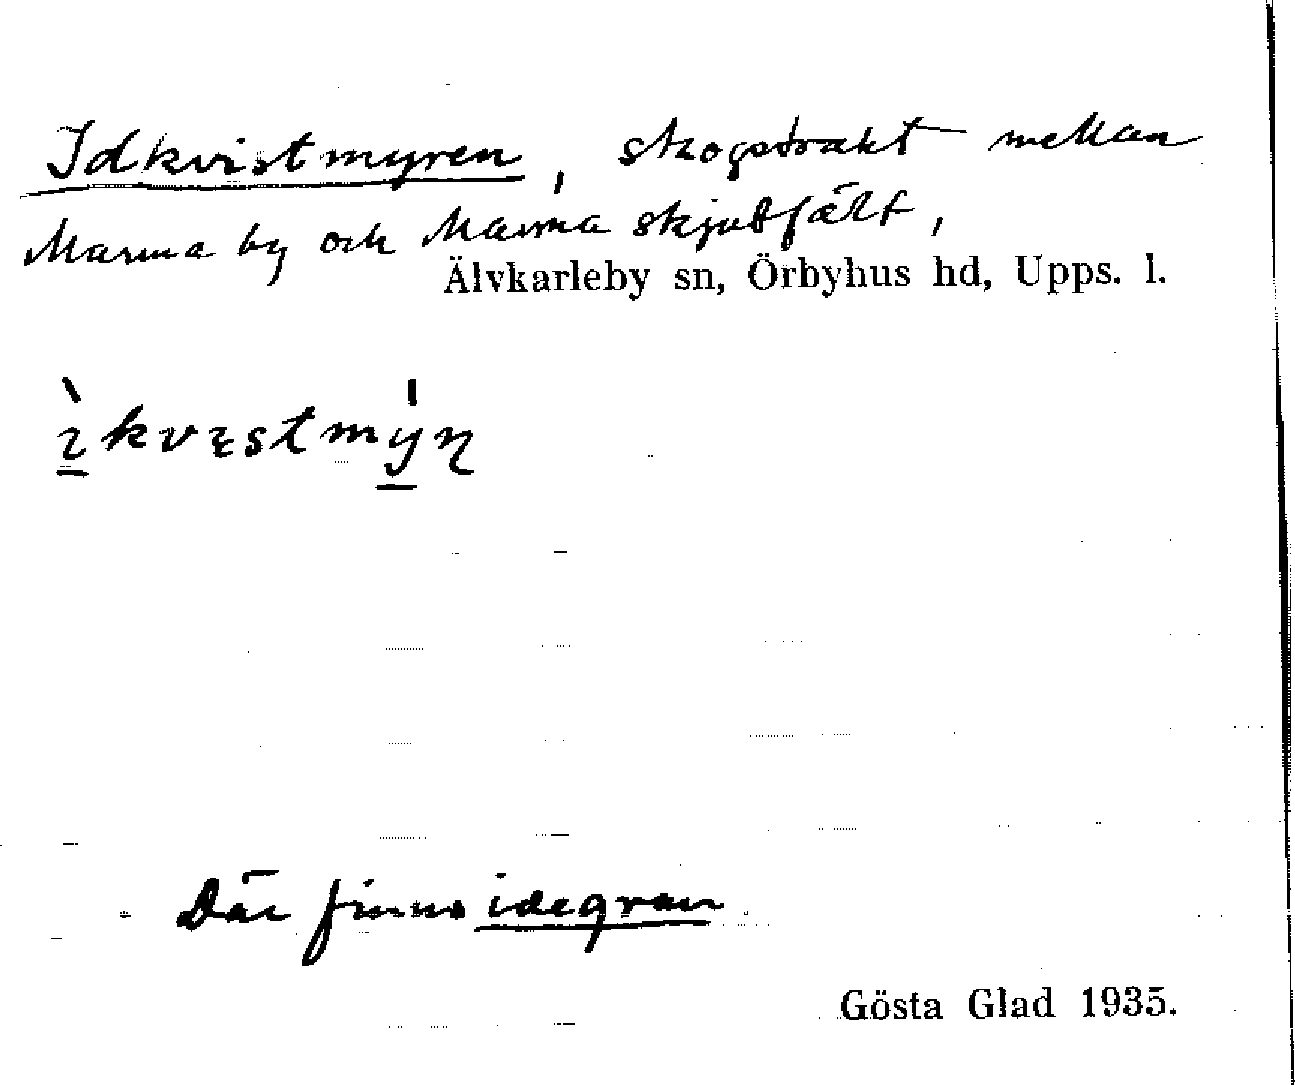 Idkvistmyren, skogstrakt mellan
Marma by och Marma skjutfält,
Älvkarleby sn, Örbyhus hd, Upps. l.
Där finns idegran
Gösta Glad 1935.